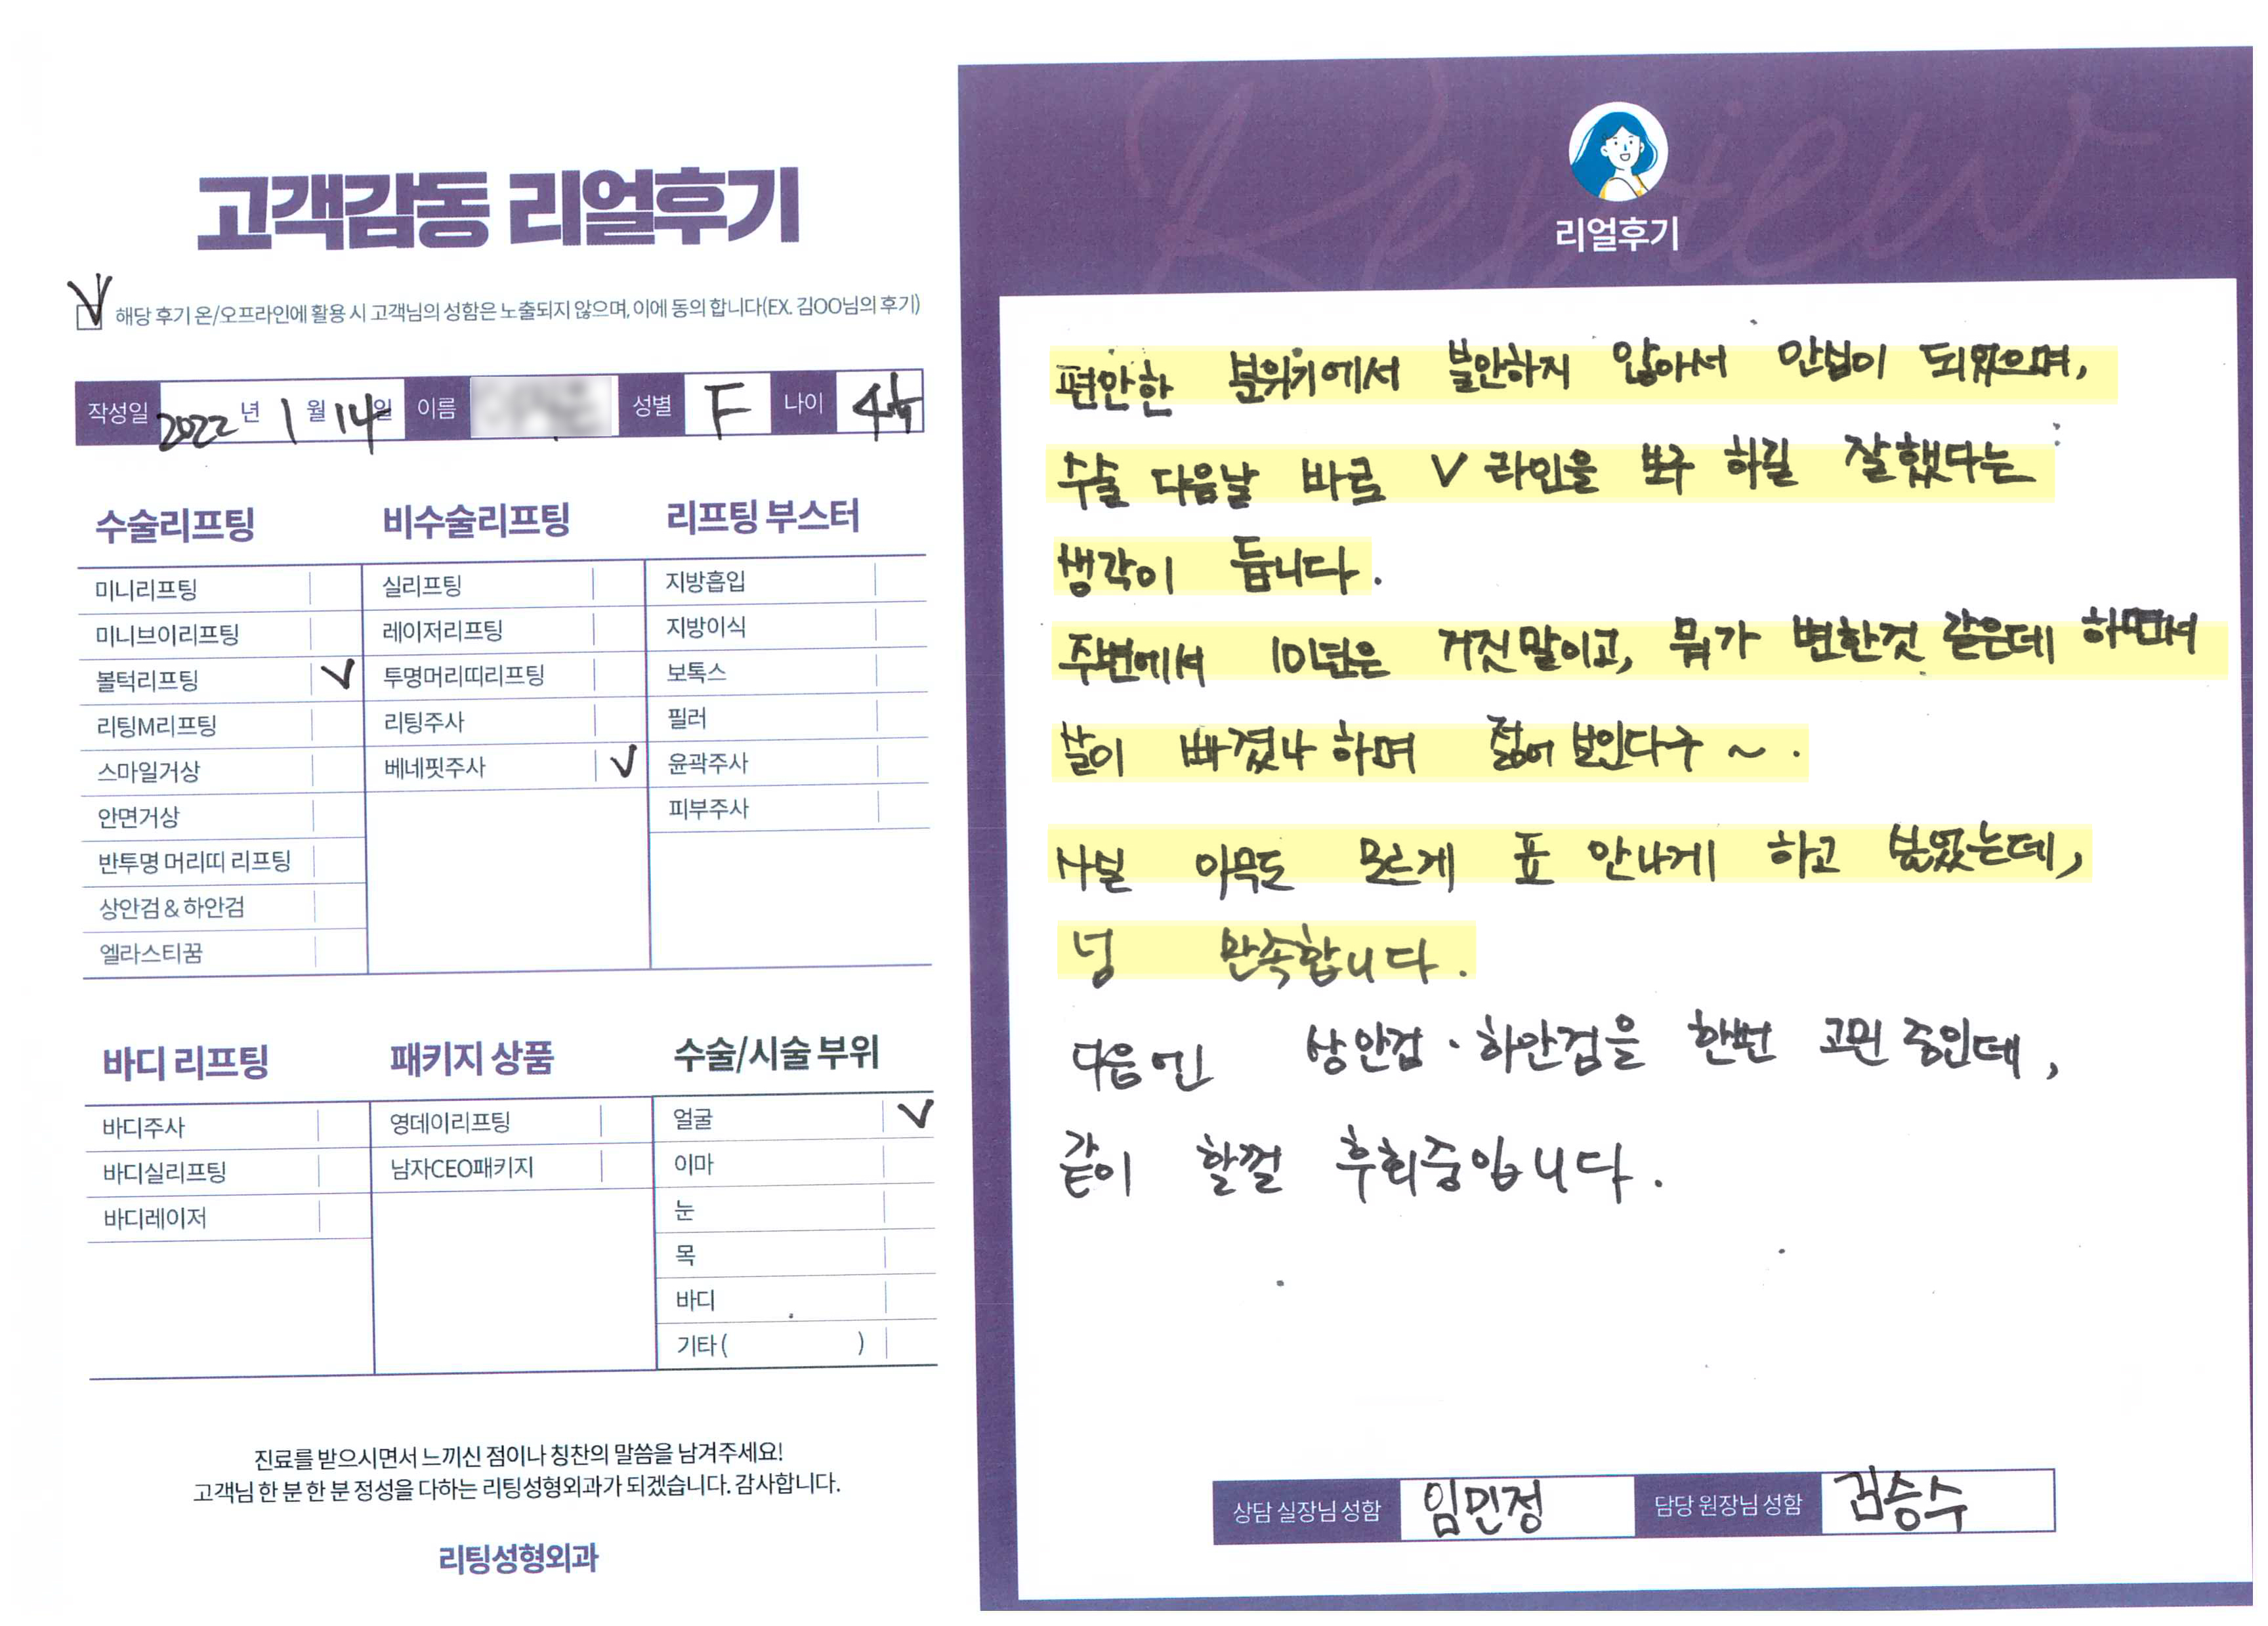 고객감동 리얼후기
해당 후기 온/오프라인에 활용 시 고객님의 성함은 노출되지 않으며, 이에 동의 합니다(EX. 김OO님의 후기)
작성일 2022 년 1 월 14 일 이름 성별 F 나이
수술리프팅
미니리프팅
미니브이리프팅
볼턱리프팅 V
리팅M리프팅
스마일거상
안면거상
반투명 머리띠 리프팅
상안검 & 하안검
엘라스티꿈
비수술리프팅
실리프팅
레이저리프팅
투명머리띠리프팅
리팅주사
베네핏주사 V
리프팅 부스터
지방흡입
지방이식
보톡스
필러
윤곽주사
피부주사
바디 리프팅
바디주사
바디실리프팅
바디레이저
패키지 상품
영데이리프팅
남자CEO패키지
수술/시술 부위
얼굴 V
이마
눈
목
바디
기타 ( )
진료를 받으시면서 느끼신 점이나 칭찬의 말씀을 남겨주세요!
고객님 한 분 한 분 정성을 다하는 리팅성형외과가 되겠습니다. 감사합니다.
리팅성형외과
Review
리얼후기
편안한 분위기에서 불안하지 않아서 안심이 되었으며,
수술 다음날 바로 V라인을 보구 하길 잘했다는
생각이 듭니다.
주변에서 10년은 거짓말이고, 뭐가 변한것 같은데 하면서
살이 빠졌나 하며 젊어 보인다구 ~.
사실 아무도 모르게 표 안나게 하고 싶었는데,
넘 만족합니다.
다음엔 상안검 · 하안검을 한번 고민 중인데,
같이 할껄 후회중입니다.
상담 실장님 성함 임민정 담당 원장님 성함 김승수